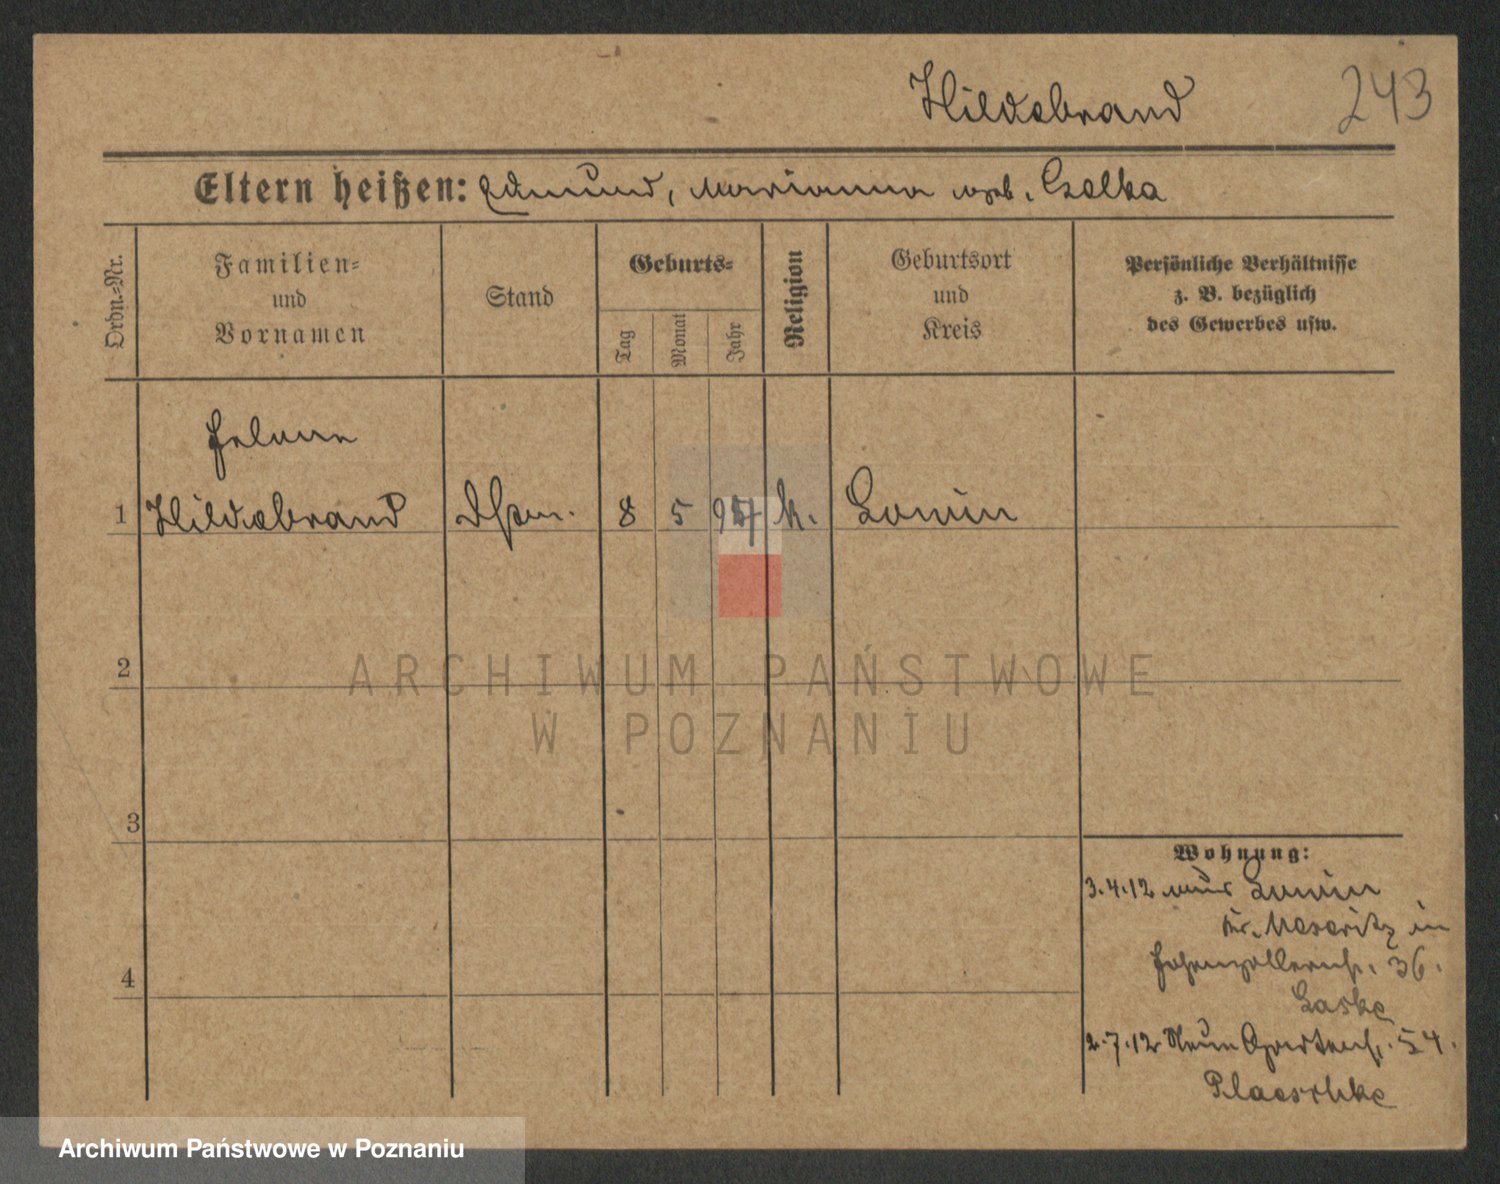 Hildebrand
243
Eltern heißen: Edmund, Marianna geb. Galka
Ordn.-Nr.
Familien-
und
Vornamen
Stand
Geburts-
Tag
Monat
Jahr
Religion
Geburtsort
und
Kreis
Persönliche Verhältnisse
z. B. bezüglich
des Gewerbes usw.
Helene
1 Hildebrand 8 5 k. Lowin
2
3
4
Wohnung:
3.4.12 aus Lowin
Kr. Meseritz in
Hohenzollernstr. 36.
Laske
2.7.12 Neue Gartenstr. 54.
Plaeschke
ARCHIWUM PAŃSTWOWE
W POZNANIU
Archiwum Państwowe w Poznaniu